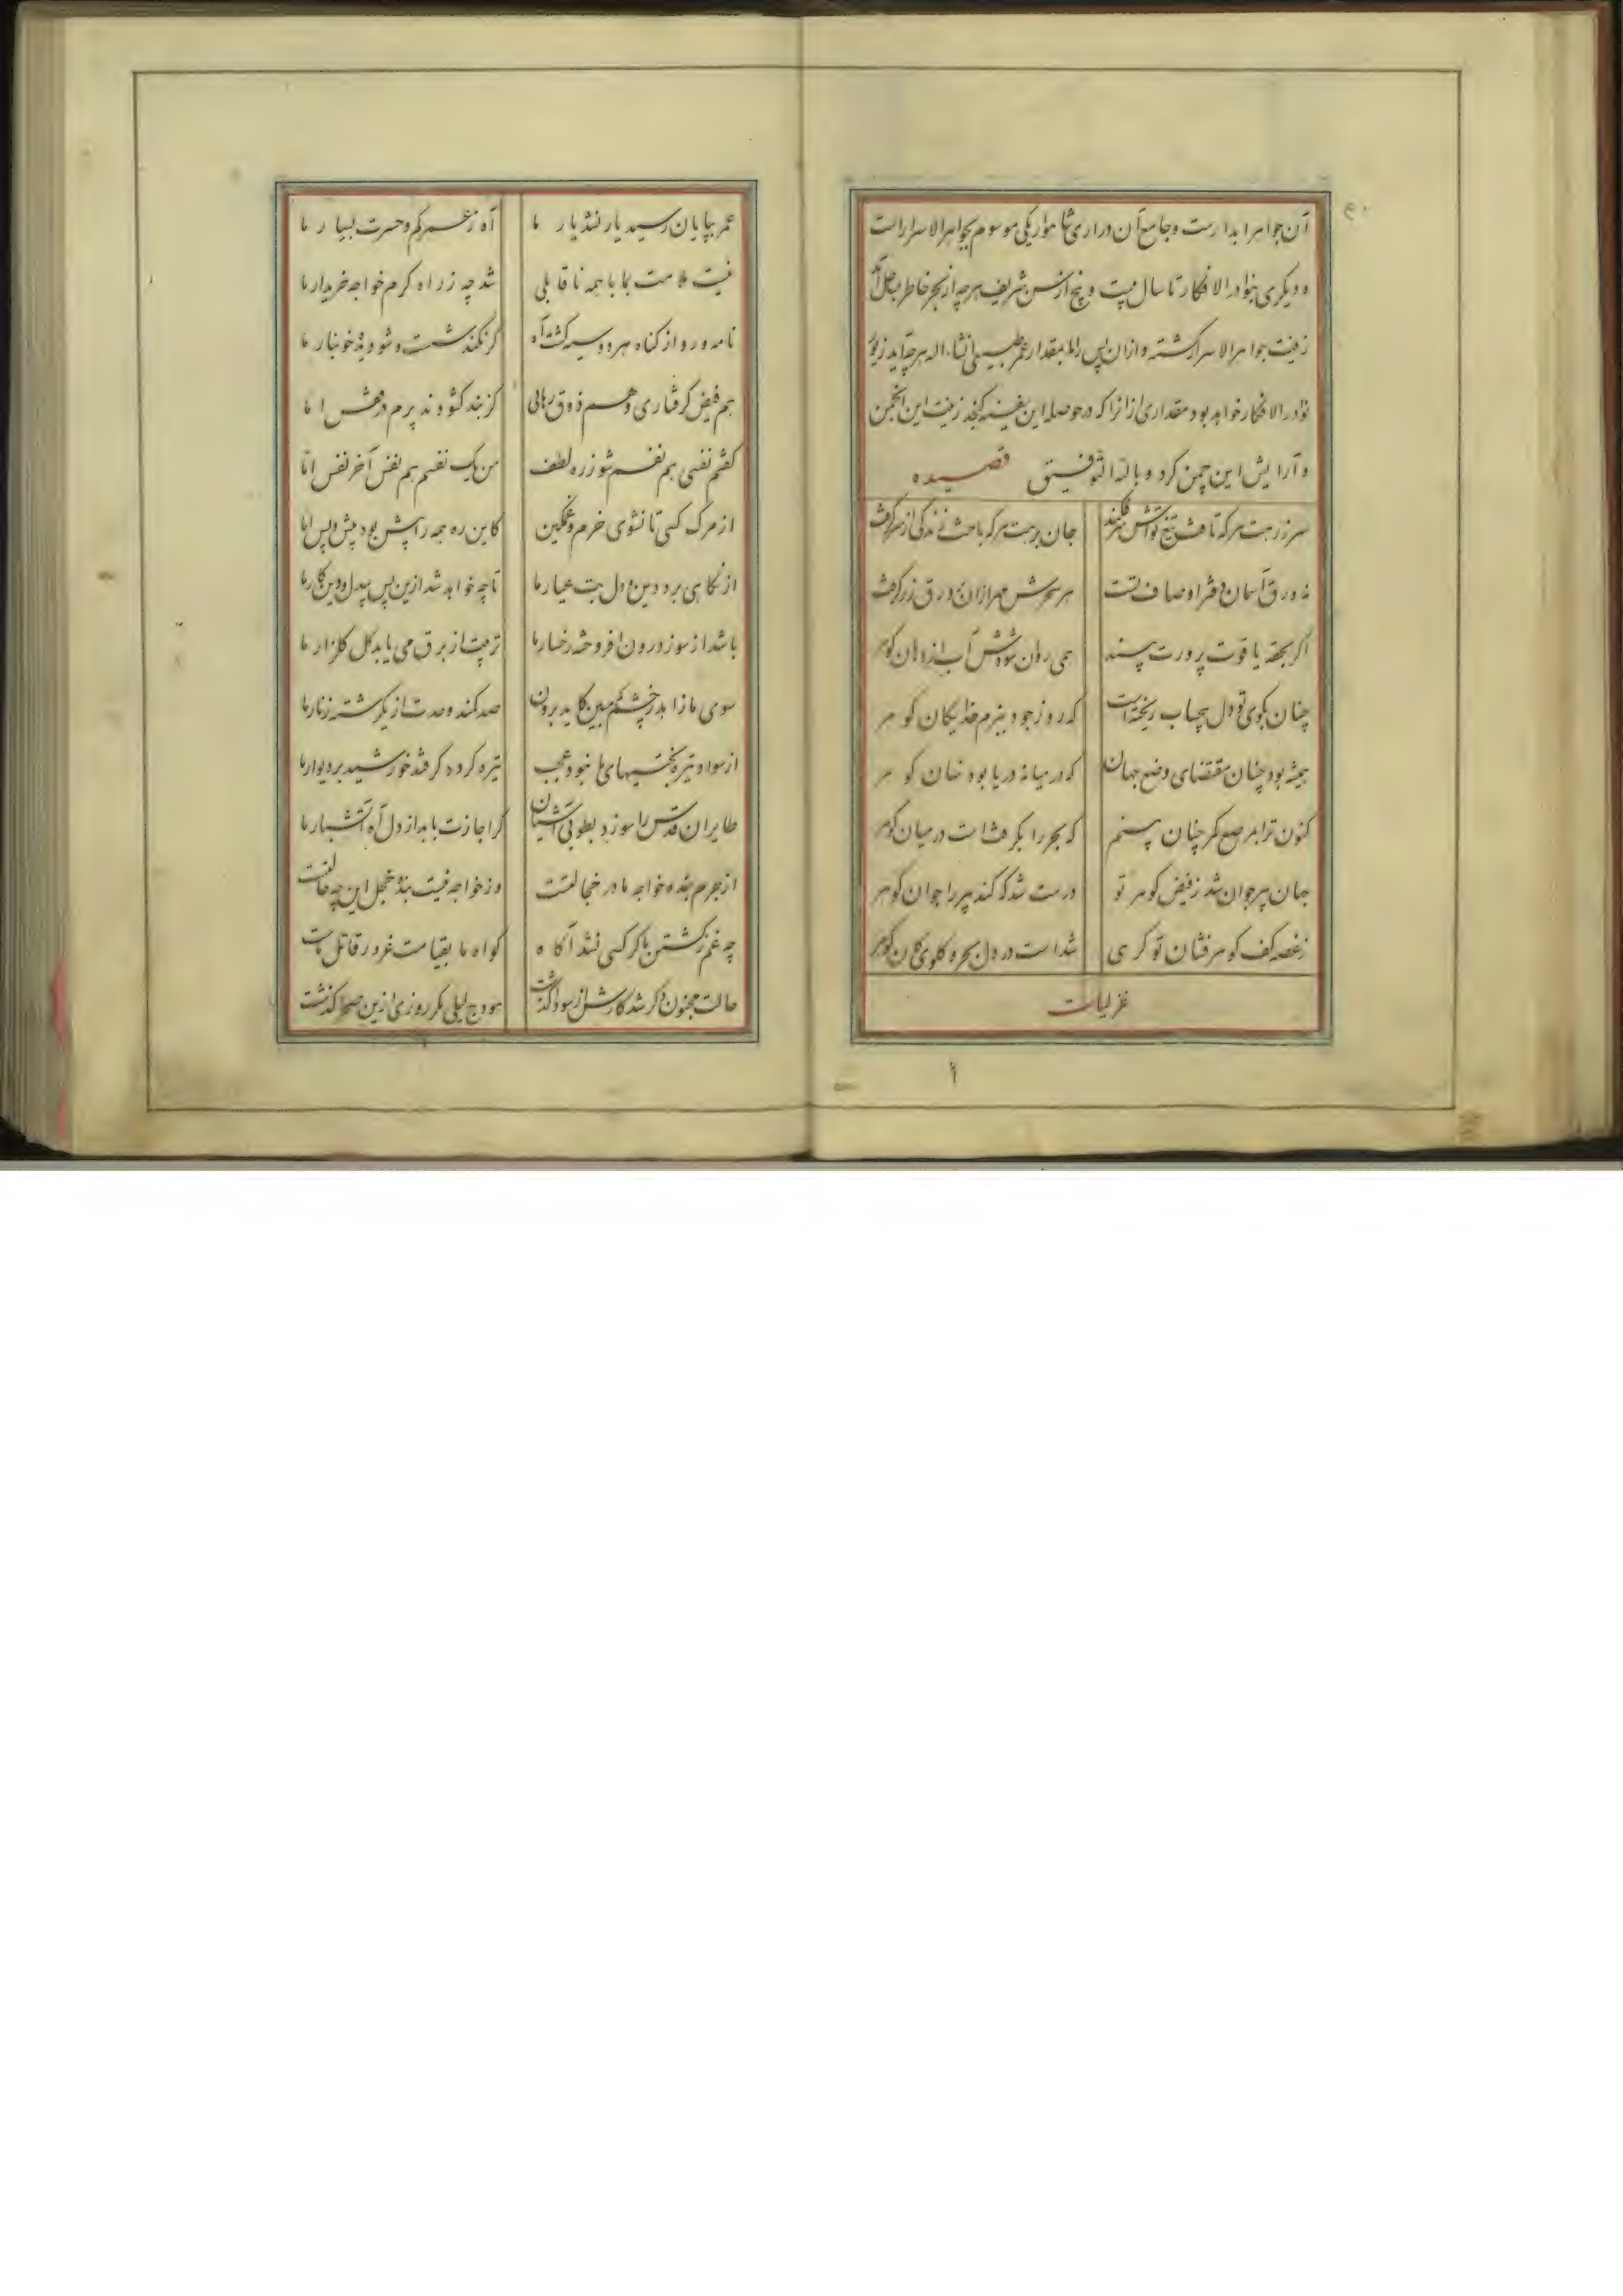 آن جواهر ابدارست و جامع آن دراری شاهوار یکی موسوم بجواهر الاسرار است
و دیگری بنوادر الافکار تا سال بیست و پنج از سن شریف هر چه از بحر خاطر بساحل آمد
زینت جواهر الاسرار گشته و ازان پس را بمقدار عمر طبیعی انشاء الله هر چه آید زیور
نوادر الافکار خواهد بود مقداری ازانرا که در حوصله این سفینه گنجد زینت این انجمن
و آرایش این چمن کرد و بالله التوفیق قصیده
جان برست هر که باحث زندگی از سر گرفت
نه ورق آسمان دفتر اوصاف تست هر سحرش مهر ازان در ورق زر گرفت
اگر بحقه یاقوت پرورت بیند همی روان شودش آب از دهان گوهر
چنان بکوی تو دل بیحساب ریخته است که روز جود ببزم خدایگان گوهر
همیشه بود چنان مقتضای وضع جهان که در میانه دریا بود نهان گوهر
کنون ترا بمرصع کمر چنان بینم که بحر را بگرفتست در میان گوهر
جهان پیر جوان شد ز فیض گوهر تو درست شد که کند پیر را جوان گوهر
ز غصه کف گوهر فشان تو گرهی شداست در دل بحر و گلوی کان گوهر
غزلیات
عمر بپایان رسید یار نشد یار ما آه ز عمر کم و حسرت بسیار ما
نیست ملامت بما با همه ناقابلی شد چه ز راه کرم خواجه خریدار ما
نامه و رو از گناه هر دو سیه گشته آه گر نکند شست و شو دیده خونبار ما
هم فیض گرفتاری و هم ذوق رهائی گر بند گشودند پرم در قفس اما
گفتم نفسی هم نفسم شو ز ره لطف من یک نفسم هم نفس آخر نفس اما
از مرگ کسی تا نشوی خرم و غمگین کاین ره همه را پیش بود پیش و پس اما
از نگاهی برد دین و دل بت عیار ما تا چه خواهد شد ازین پس بیدل و دین کار ما
باشد از سوز درون افروخته رخسار ما تربیت از برق می یابد گل گلزار ما
سوی ما زاهد چشم کم مبین کاید برون صد کمند وحدت از یکرشته زنار ما
از سواد تیره بختیهای ما نبود عجب تیره گردد گر فتد خورشید بر دیوار ما
طایران قدس را سوزد بطوبی آشیان گر اجازت یابد از دل آه آتشبار ما
از جرم بنده خواجه ما در خجالتست وز خواجه نیست بنده خجل این چه حالتست
چه غم ز کشتن ما گر کسی نشد آگاه گواه ما بقیامت غرور قاتل ماست
حالت مجنون دگر شد کارش از سودا گذشت هودج لیلی مگر روزی ازین صحرا گذشت